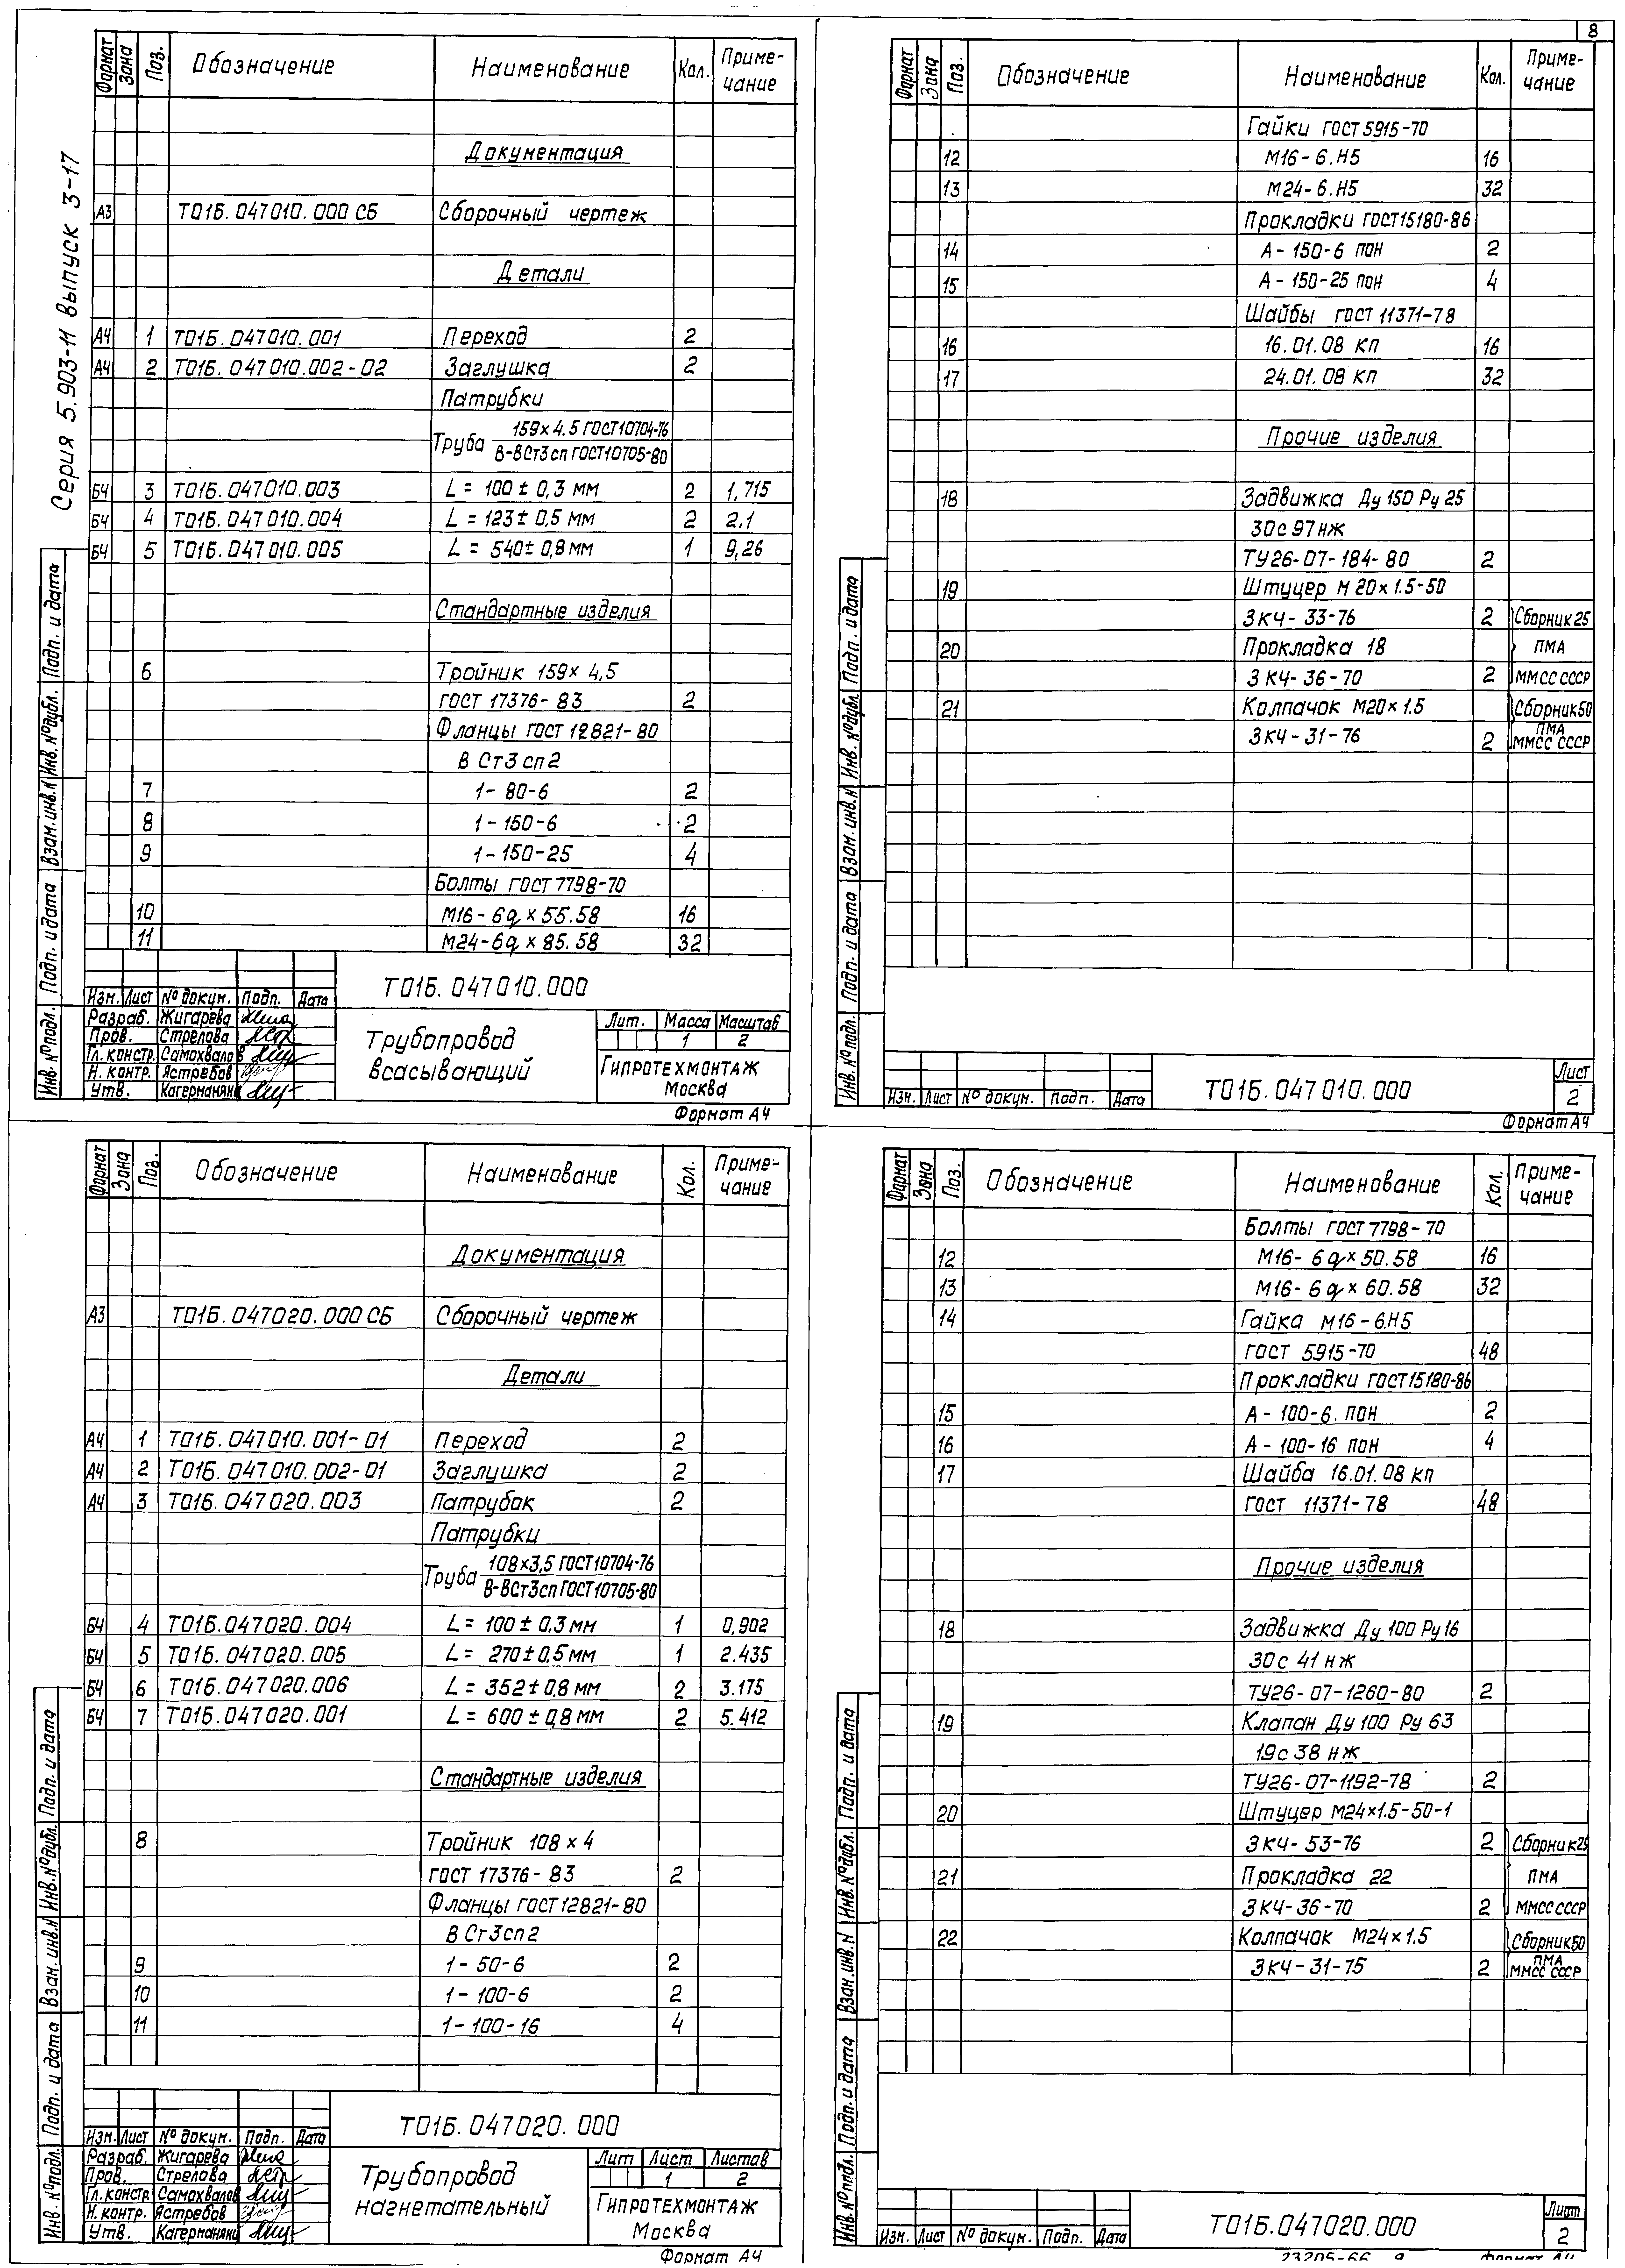 8
Серия 5.903-11 выпуск 3-17
Формат Зона Поз. Обозначение Наименование Кол. Приме-
чание
Документация
А3 Т01Б.047010.000 СБ Сборочный чертеж
Детали
А4 1 Т01Б.047010.001 Переход 2
А4 2 Т01Б.047010.002-02 Заглушка 2
Патрубки
Труба 159×4.5 ГОСТ10704-76
В-ВСт3сп ГОСТ10705-80
БЧ 3 Т01Б.047010.003 L = 100 ± 0,3 мм 2 1,715
БЧ 4 Т01Б.047010.004 L = 123 ± 0,5 мм 2 2.1
БЧ 5 Т01Б.047010.005 L = 540 ± 0,8 мм 1 9,26
Стандартные изделия
6 Тройник 159×4,5
ГОСТ 17376-83 2
Фланцы ГОСТ 12821-80
В Ст3 сп2
7 1-80-6 2
8 1-150-6 2
9 1-150-25 4
Болты ГОСТ 7798-70
10 М16-6g×55.58 16
11 М24-6g×85.58 32
Инв. № подл. Подп. и дата Взам. инв. № Инв. № дубл. Подп. и дата
Т01Б.047010.000
Изм. Лист № докум. Подп. Дата
Разраб. Жигарева
Пров. Стрелова
Гл. констр. Самохвалов
Н. контр. Ястребов
Утв. Кагерманян
Трубопровод
всасывающий
Лит. Масса Масштаб
1 2
ГИПРОТЕХМОНТАЖ
Москва
Формат А4
Формат Зона Поз. Обозначение Наименование Кол. Приме-
чание
Гайки ГОСТ 5915-70
12 М16-6.Н5 16
13 М24-6.Н5 32
Прокладки ГОСТ15180-86
14 А-150-6 ПОН 2
15 А-150-25 ПОН 4
Шайбы ГОСТ 11371-78
16 16.01.08 кп 16
17 24.01.08 кп 32
Прочие изделия
18 Задвижка Ду 150 Ру 25
30с 97нж
ТУ26-07-184-80 2
19 Штуцер М 20×1.5-50
ЗКЧ-33-76 2 Сборник 25
20 Прокладка 18 ПМА
ЗКЧ-36-70 2 ММСС СССР
21 Колпачок М20×1.5 Сборник 50
ЗКЧ-31-76 2 ПМА
ММСС СССР
Инв. № подл. Подп. и дата Взам. инв. № Инв. № дубл. Подп. и дата
Изм. Лист № докум. Подп. Дата
Т01Б.047010.000
Лист
2
Формат А4
Формат Зона Поз. Обозначение Наименование Кол. Приме-
чание
Документация
А3 Т01Б.047020.000 СБ Сборочный чертеж
Детали
А4 1 Т01Б.047010.001-01 Переход 2
А4 2 Т01Б.047010.002-01 Заглушка 2
А4 3 Т01Б.047020.003 Патрубок 2
Патрубки
Труба 108×3,5 ГОСТ10704-76
В-ВСт3сп ГОСТ10705-80
БЧ 4 Т01Б.047020.004 L = 100 ± 0,3 мм 1 0,902
БЧ 5 Т01Б.047020.005 L = 270 ± 0,5 мм 1 2.435
БЧ 6 Т01Б.047020.006 L = 352 ± 0,8 мм 2 3.175
БЧ 7 Т01Б.047020.001 L = 600 ± 0,8 мм 2 5.412
Стандартные изделия
8 Тройник 108×4
ГОСТ 17376-83 2
Фланцы ГОСТ 12821-80
В Ст3сп2
9 1-50-6 2
10 1-100-6 2
11 1-100-16 4
Инв. № подл. Подп. и дата Взам. инв. № Инв. № дубл. Подп. и дата
Т01Б.047020.000
Изм. Лист № докум. Подп. Дата
Разраб. Жигарева
Пров. Стрелова
Гл. констр. Самохвалов
Н. контр. Ястребов
Утв. Кагерманян
Трубопровод
нагнетательный
Лит Лист Листов
1 2
ГИПРОТЕХМОНТАЖ
Москва
Формат А4
Формат Зона Поз. Обозначение Наименование Кол. Приме-
чание
Болты ГОСТ 7798-70
12 М16-6g×50.58 16
13 М16-6g×60.58 32
14 Гайка М16-6.Н5
ГОСТ 5915-70 48
Прокладки ГОСТ15180-86
15 А-100-6. ПОН 2
16 А-100-16 ПОН 4
17 Шайба 16.01.08 кп
ГОСТ 11371-78 48
Прочие изделия
18 Задвижка Ду 100 Ру16
30с 41 нж
ТУ26-07-1260-80 2
19 Клапан Ду 100 Ру 63
19с 38 нж
ТУ26-07-1192-78 2
20 Штуцер М24×1.5-50-1
ЗКЧ-53-76 2 Сборник 25
21 Прокладка 22 ПМА
ЗКЧ-36-70 2 ММСС СССР
22 Колпачок М24×1.5 Сборник 50
ЗКЧ-31-75 2 ПМА
ММСС СССР
Инв. № подл. Подп. и дата Взам. инв. № Инв. № дубл. Подп. и дата
Изм. Лист № докум. Подп. Дата
Т01Б.047020.000
Лист
2
23205-66 9 Формат А4